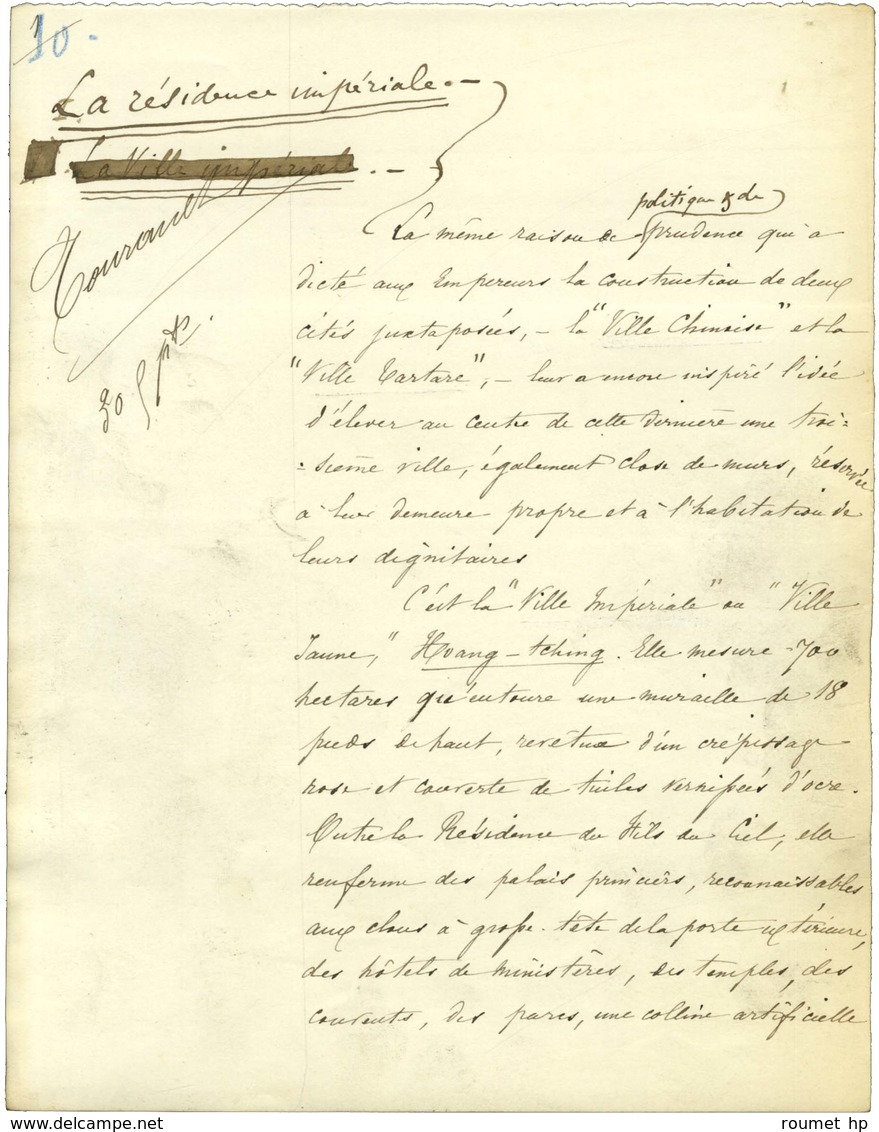 10.
La résidence impériale. –
La Ville impériale. –
politique & de
La même raison de prudence qui a
dicté aux Empereurs la construction de deux
cités juxtaposées, – la "Ville Chinoise" et la
"Ville Tartare", – leur a encore inspiré l'idée
d'élever au centre de cette dernière une troi-
-sième ville, également close de murs, réservée
à leur demeure propre et à l'habitation de
leurs dignitaires
C'est la "Ville Impériale" ou "Ville
Jaune", Hoang-tching. Elle mesure 700
hectares qu'entoure une muraille de 18
pieds de haut, revêtue d'un crépissage
rose et couverte de tuiles vernissées d'ocre.
Outre la Résidence du Fils du Ciel, elle
renferme des palais princiers, reconnaissables
aux clous à grosse tête de la porte extérieure,
des hôtels de ministères, des temples, des
couvents, des parcs, une colline artificielle
roumet hp